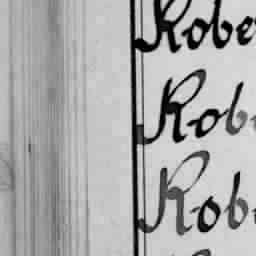 Robe
Robe
Robe